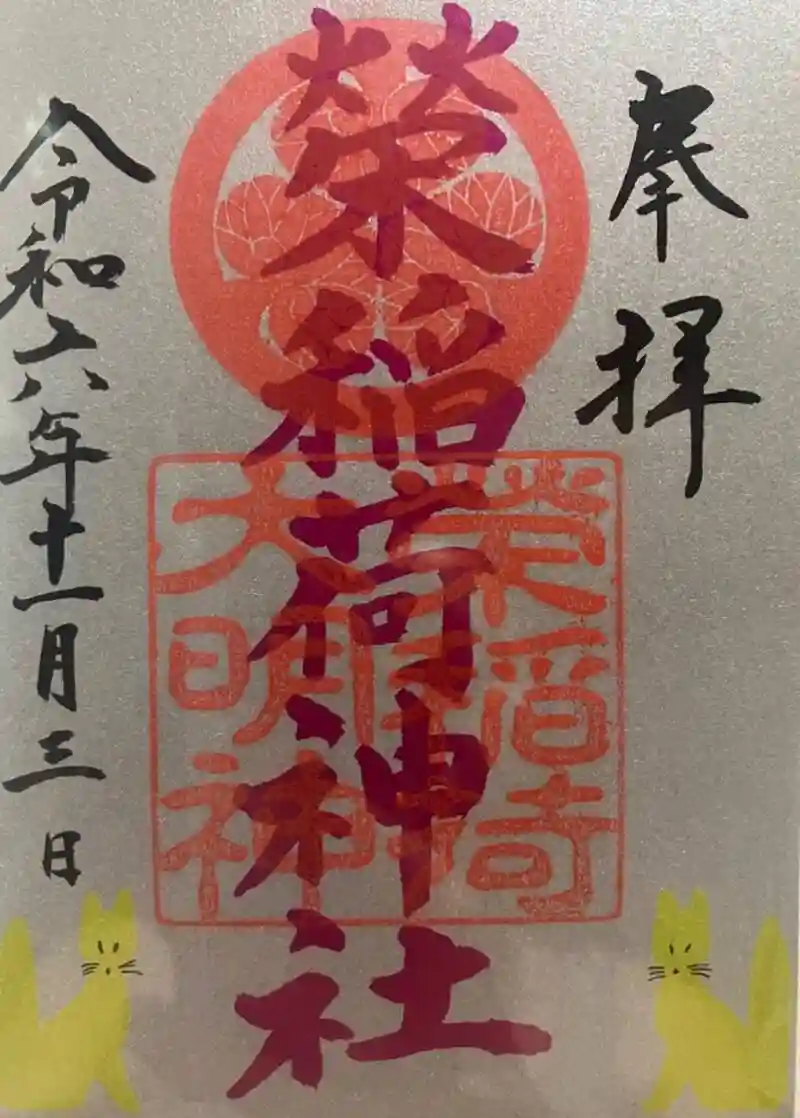 奉拝
榮稲荷神社
大明神
令和六年十一月三日